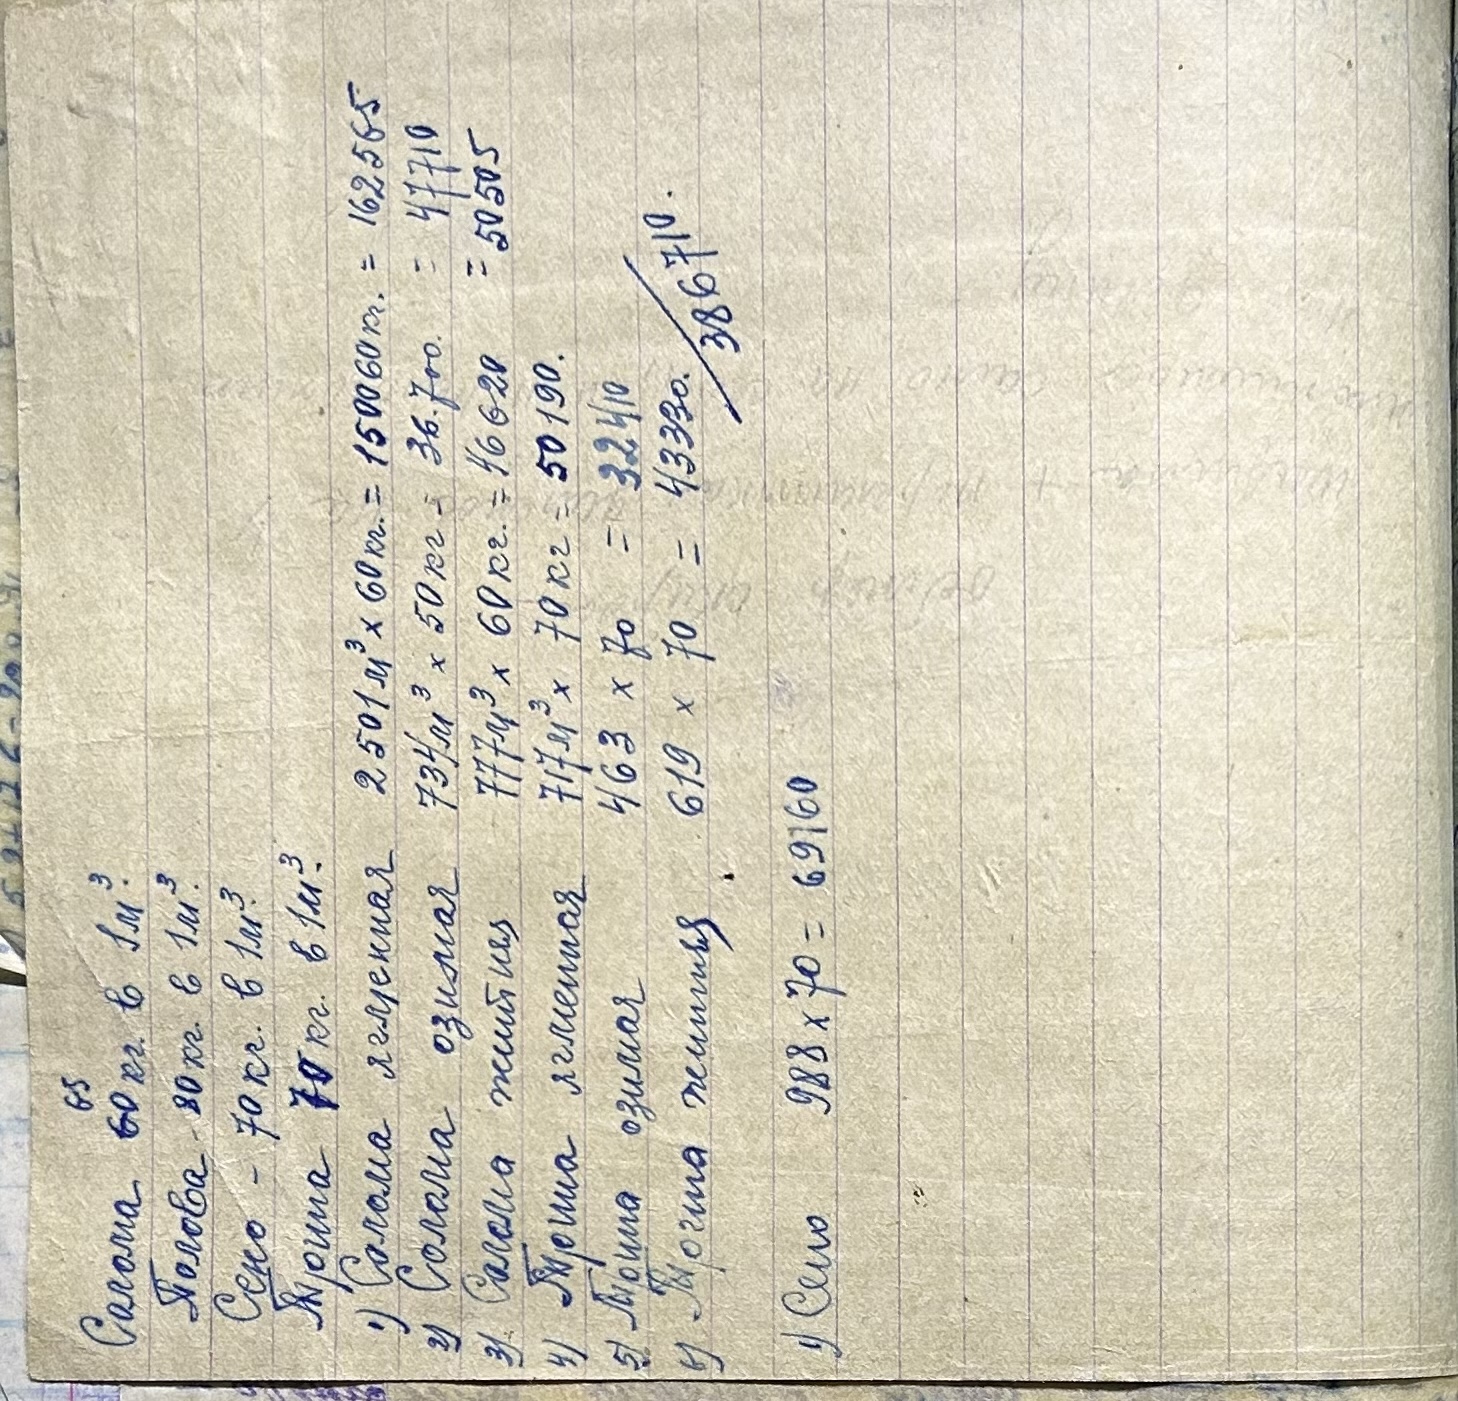 65
Солома 60 кг. в 1 м³.
Полова - 80 кг. в 1 м³.
Сено - 70 кг. в 1 м³
Трина 70 кг. в 1 м³.
1) Солома ячменная 2501 м³ x 60 кг. = 150060 кг. = 162565
2) Солома озимая 734 м³ x 50 кг = 36.700. = 47710
3) Солома житняя 777 м³ x 60 кг. = 46620 = 50505
4) Трина ячменная 717 м³ x 70 кг = 50190.
5) Трина озимая 463 x 70 = 32410
6) Трина житняя 619 x 70 = 43330. / 386710.
1) Сено 988 x 70 = 69160